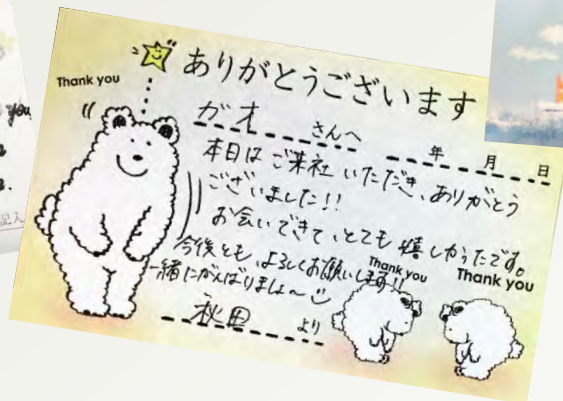 Thank you
ありがとうございます
ガオ さんへ
年 月 日
本日は ご来社 いただき、ありがとう
ございました!!
お会いできて、とても 嬉しかったです。
今後とも、よろしくお願いします!!
一緒にがんばりましょ〜
秋田 より
Thank you
Thank you
you
記入